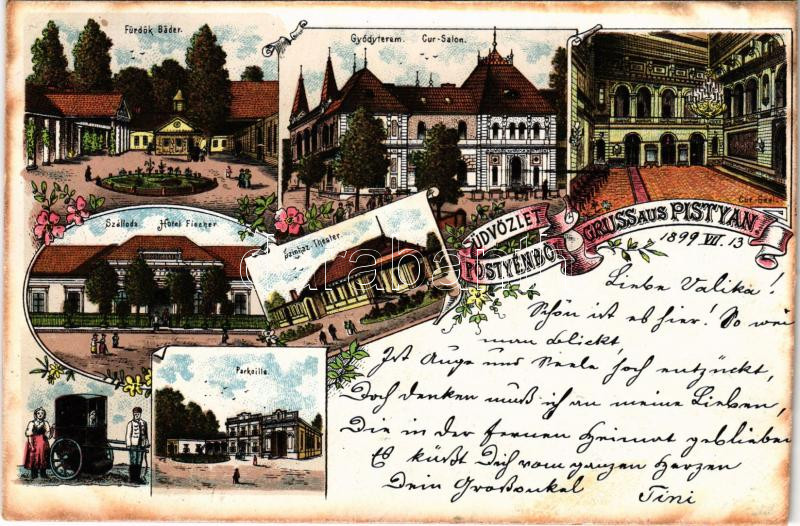 Fürdők Bäder.
Gyógyterem. Cur-Salon.
Cur-Saal.
Szálloda. Hotel Fischer.
Szinház. Theater.
Parkville.
ÜDVÖZLET PÖSTYÉNBŐL
GRUSS AUS PISTYAN
1899 VII. 13
Liebe Valika!
Schön ist es hier! So wei
man blickt
Ist Auge und Seele hoch entzückt,
Doch denken muß ich an meine Lieben,
Die in der fernen Heimat geblieben
Es küßt Dich vom ganzen Herzen
Dein Großonkel Tini
darabanth